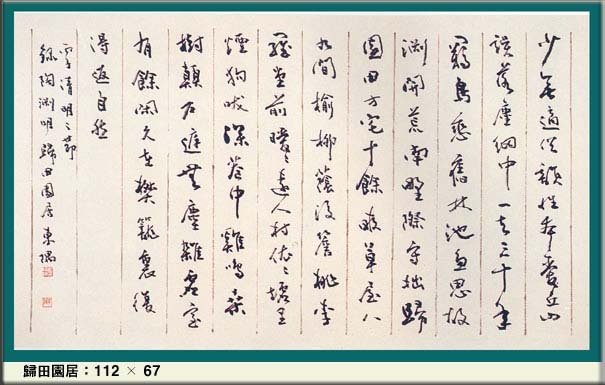 少無適俗韻性本愛丘山
誤落塵網中一去三十年
羈鳥戀舊林池魚思故
淵開荒南野際守拙歸
園田方宅十餘畝草屋八
九間榆柳蔭後簷桃李
羅堂前曖〻遠人村依〻墟里
煙狗吠深巷中雞鳴桑
樹顛戶庭無塵雜虛室
有餘閑久在樊籠裏復
得返自然
清明之節
錄陶淵明歸田園居 東隅
歸田園居：112 × 67